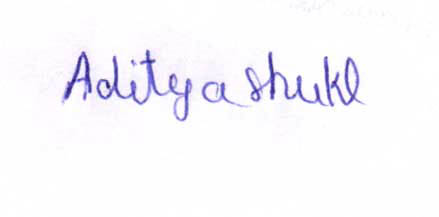 Aditya shukl